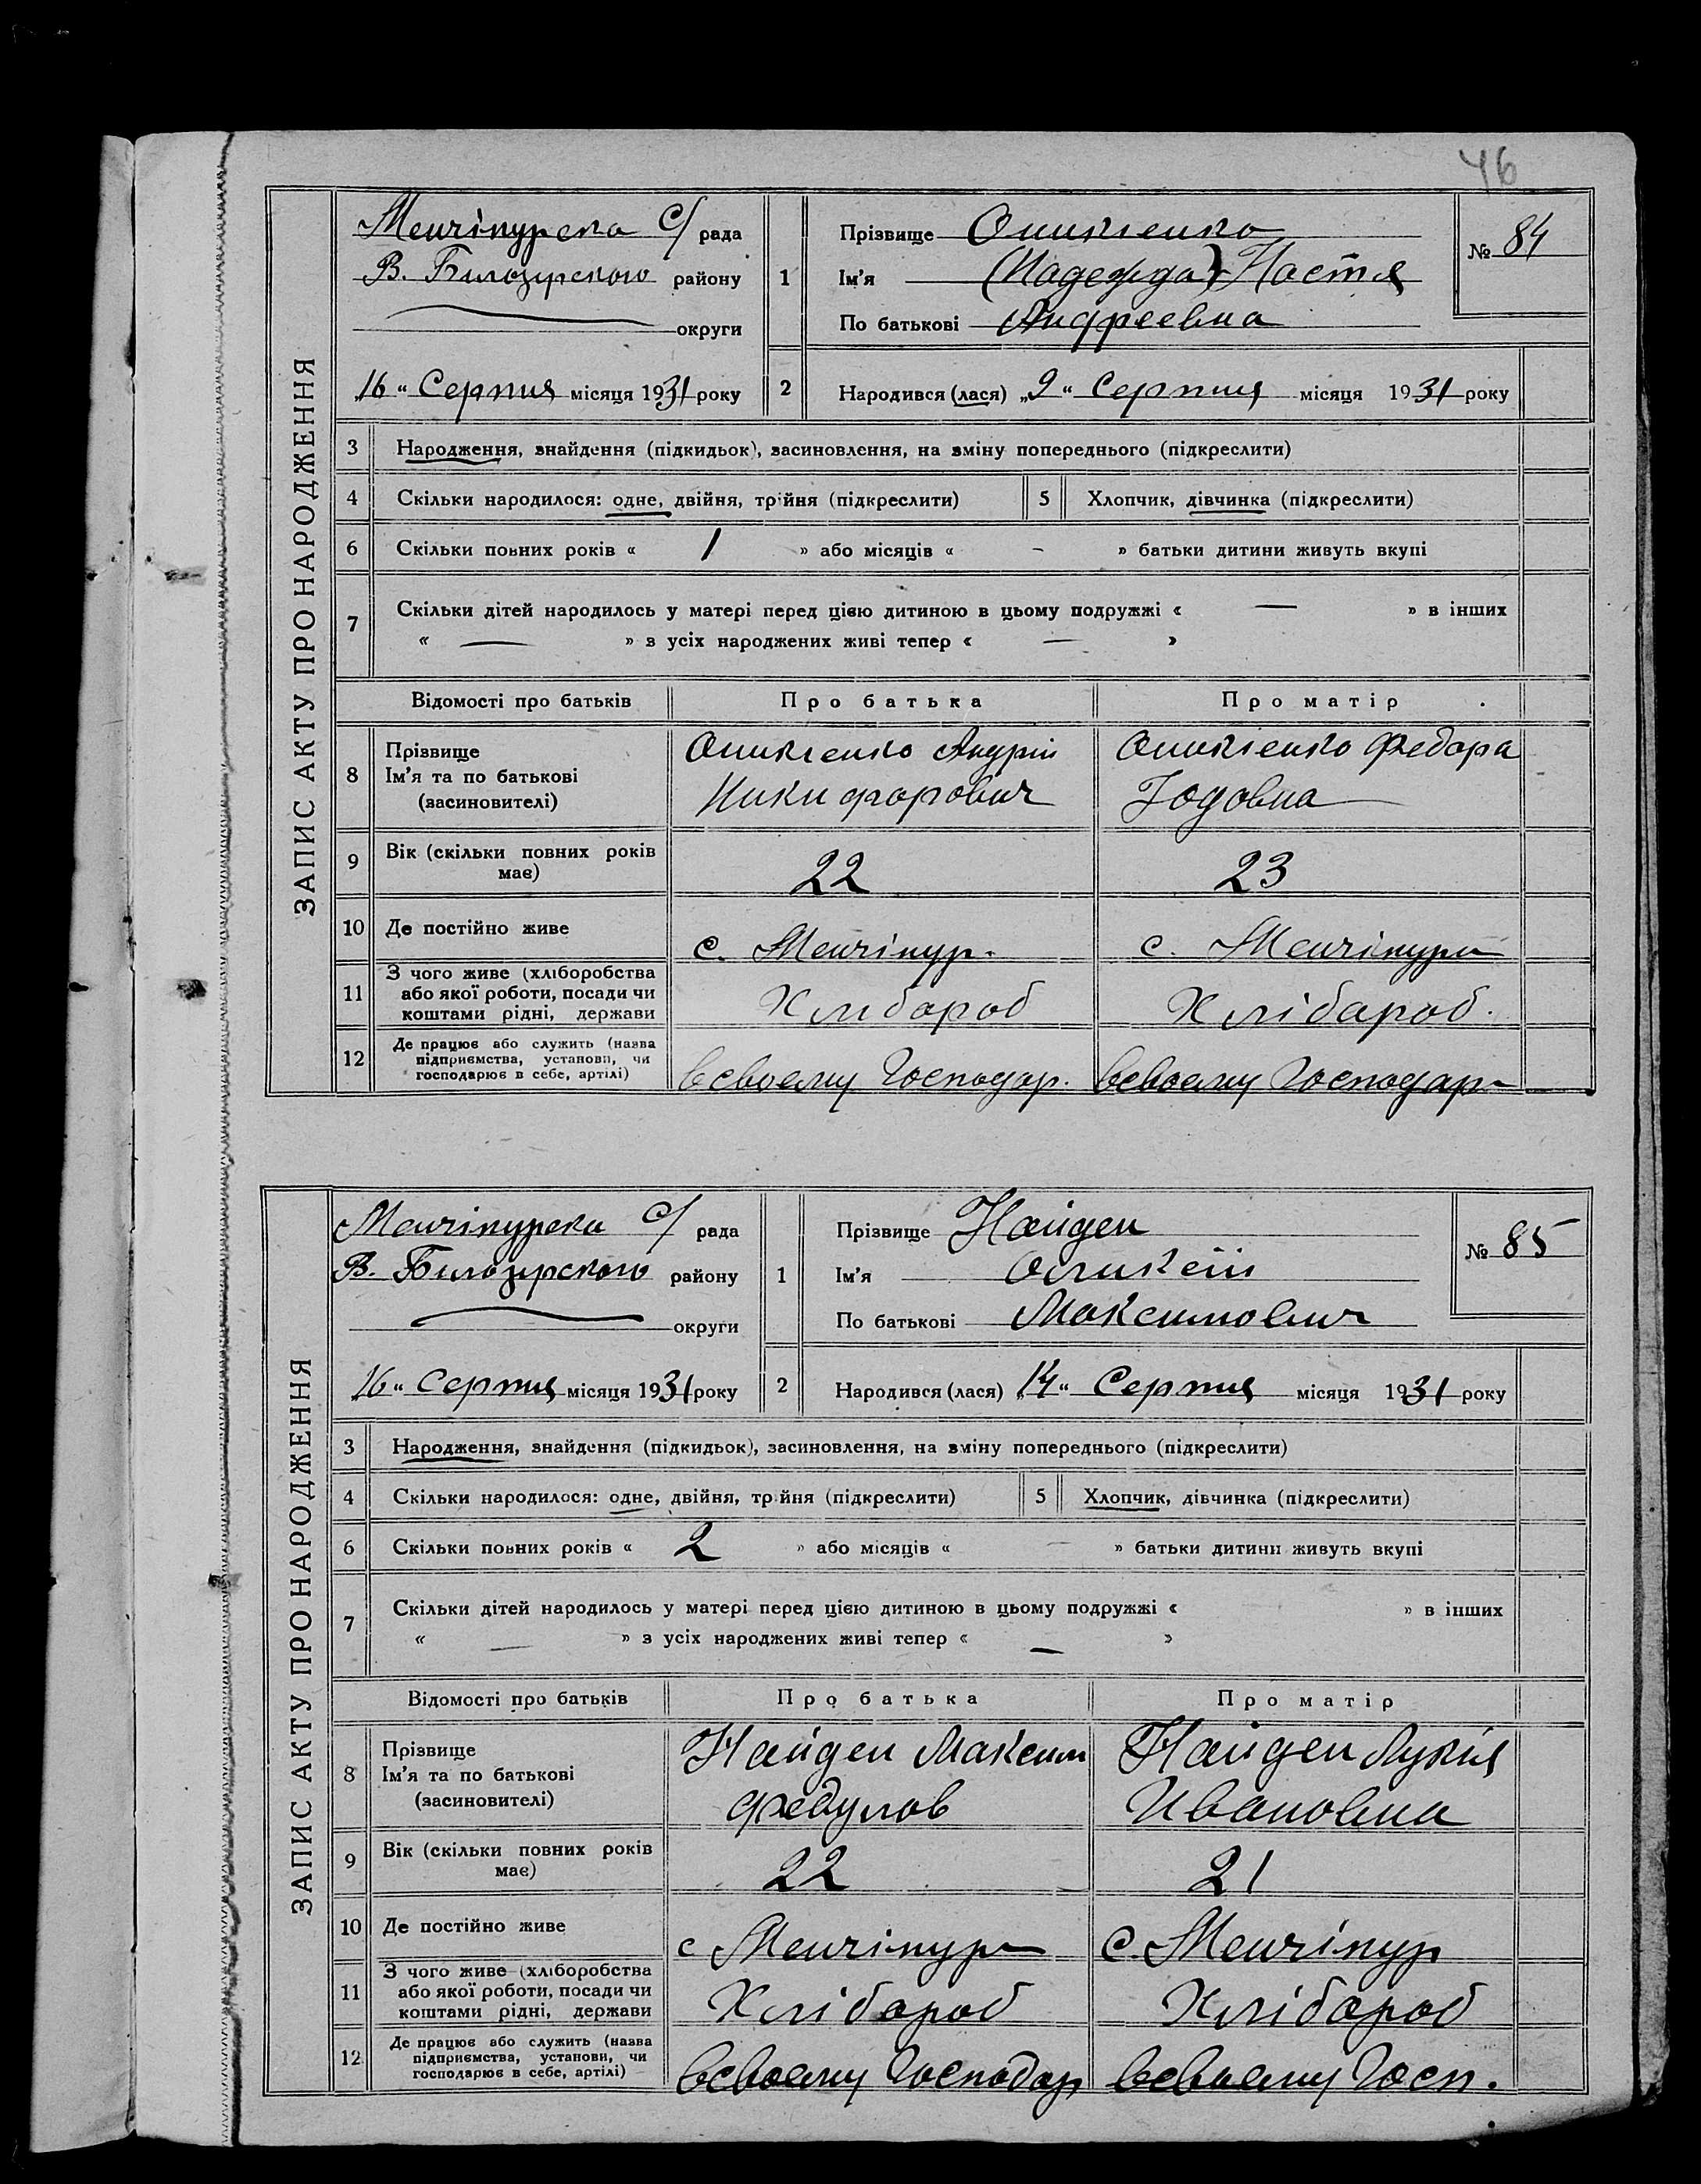 46
ЗАПИС АКТУ ПРО НАРОДЖЕННЯ
Менчікурска С/ рада
В. Білозирского району
округи
„16“ Серпня місяця 1931 року
1
Прізвище Оникіенко
Ім’я (Надежда) Настя
По батькові Андреевна
№ 84
2 Народився (лася) „9“ Серпня місяця 1931 року
3 Народження, знайдення (підкидьок), засиновлення, на зміну попереднього (підкреслити)
4 Скільки народилося: одне, двійня, трійня (підкреслити) 5 Хлопчик, дівчинка (підкреслити)
6 Скільки повних років « 1 » або місяців « - » батьки дитини живуть вкупі
7 Скільки дітей народилось у матері перед цією дитиною в цьому подружжі « — » в інших
« — » з усіх народжених живі тепер « — »
Відомості про батьків Про батька Про матір
8 Прізвище Ім’я та по батькові (засиновителі)
Оникіенко Андрій
Никифорович
Оникіенко Федора
Іодовна
9 Вік (скільки повних років має) 22 23
10 Де постійно живе с. Менчікур. с. Менчікур
11 З чого живе (хліборобства або якої роботи, посади чи коштами рідні, держави Хлібороб Хлібароб.
12 Де працює або служить (назва підприємства, установи, чи господарює в себе, артілі) всвоему Господар. всвоему Господар
ЗАПИС АКТУ ПРО НАРОДЖЕННЯ
Менчікурска С/ рада
В. Білозирского району
округи
„16“ Серпня місяця 1931 року
1
Прізвище Найден
Ім’я
По батькові Максимович
№ 85
2 Народився (лася) „14“ Серпня місяця 1931 року
3 Народження, знайдення (підкидьок), засиновлення, на зміну попереднього (підкреслити)
4 Скільки народилося: одне, двійня, трійня (підкреслити) 5 Хлопчик, дівчинка (підкреслити)
6 Скільки повних років « 2 » або місяців « — » батьки дитини живуть вкупі
7 Скільки дітей народилось у матері перед цією дитиною в цьому подружжі « » в інших
« — » з усіх народжених живі тепер « — »
Відомості про батьків Про батька Про матір
8 Прізвище Ім’я та по батькові (засиновителі)
Найден Максим
Федулов
Найден Лукія
Ивановна
9 Вік (скільки повних років має) 22 21
10 Де постійно живе с Менчікур с. Менчікур
11 З чого живе (хліборобства або якої роботи, посади чи коштами рідні, держави Хлібороб Хлібороб
12 Де працює або служить (назва підприємства, установи, чи господарює в себе, артілі) всвоему Господар всвоему Госп.